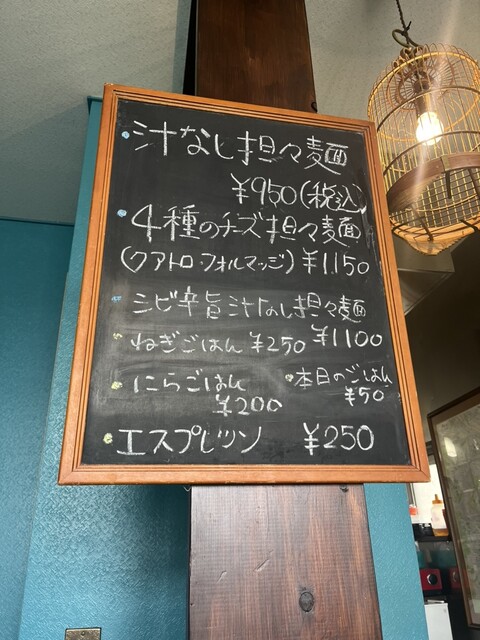 ・汁なし担々麺
¥950(税込)
・4種のチーズ担々麺
(クアトロ フォルマッジ) ¥1,150
・シビ辛旨汁なし担々麺
¥1100
・ねぎごはん ¥250
・にらごはん
¥200
・本日のごはん
¥50
・エスプレッソ ¥250